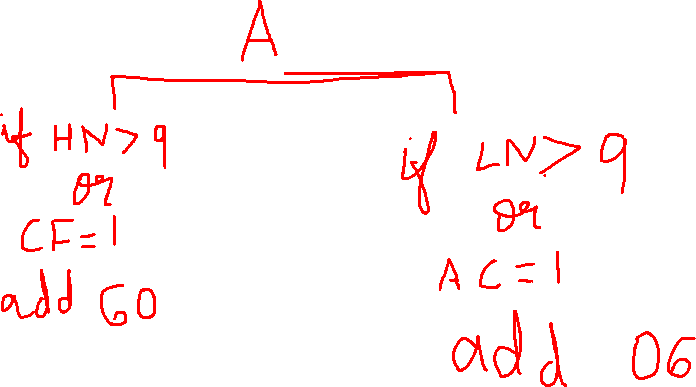 A
if HN>9
or
CF=1
add 60
if LN>9
or
AC=1
add 06